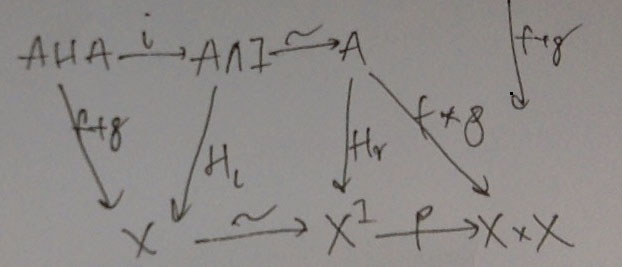 A ⨿ A i A ∧ I ~ A
f+g
f+g H_l H_r f × g
X ~ X^I p X × X